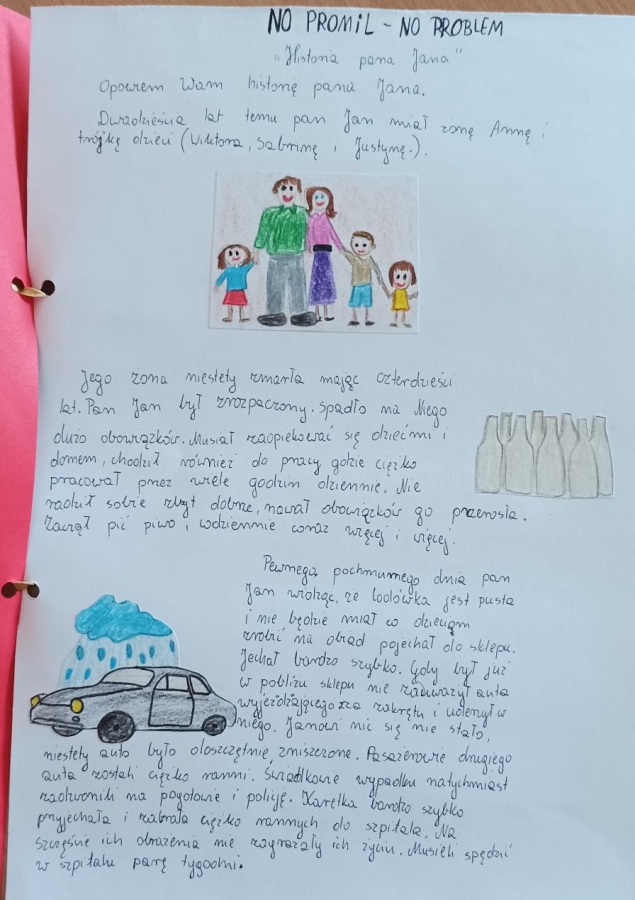 NO PROMIL - NO PROBLEM
"Historia pana Jana"
Opowiem Wam historię pana Jana.
Dwadzieścia lat temu pan Jan miał żonę Annę i
trójkę dzieci (Wiktora, Sabrinę i Justynę.).
Jego żona niestety zmarła mając czterdzieści
lat. Pan Jan był zrozpaczony. Spadło na Niego
dużo obowiązków. Musiał zaopiekować się dziećmi i
domem, chodził również do pracy gdzie ciężko
pracował przez wiele godzin dziennie. Nie
radził sobie zbyt dobrze, nawał obowiązków go przerosła.
Zaczął pić piwo i codziennie coraz więcej i więcej.
Pewnego pochmurnego dnia pan
Jan widząc, że lodówka jest pusta
i nie będzie miał co dzieciom
zrobić na obiad pojechał do sklepu.
Jechał bardzo szybko. Gdy był już
w pobliżu sklepu nie zauważył auta
wyjeżdżającego zza zakrętu i uderzył w
niego. Janowi nic się nie stało,
niestety auto było doszczętnie zniszczone. Pasażerowie drugiego
auta zostali ciężko ranni. Świadkowie wypadku natychmiast
zadzwonili na pogotowie i policję. Karetka bardzo szybko
przyjechała i zabrała ciężko rannych do szpitala. Na
szczęście ich obrażenia nie zagrażały ich życiu. Musieli spędzić
w szpitalu parę tygodni.